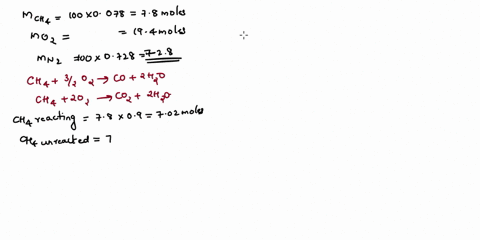 MCH4 = 100x0.078 = 7.8 moles
mO2 = = 19.4 moles
mN2 = 100x0.728 = 72.8
CH4 + 3/2 O2 → CO + 2H2O
CH4 + 2O2 → CO2 + 2H2O
CH4 reacting = 7.8 x 0.9 = 7.02 moles
CH4 unreacted = 7